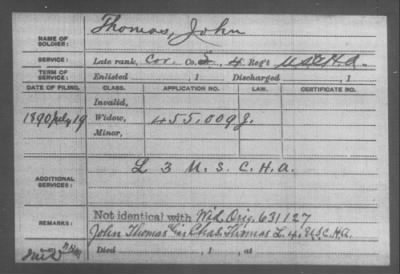 NAME OF SOLDIER: Thomas, John
SERVICE: Late rank, Cor. Co. S, 4 Reg't U.S.C.H.A.
TERM OF SERVICE: Enlisted , 1 Discharged , 1
DATE OF FILING. CLASS. APPLICATION NO. LAW. CERTIFICATE NO.
Invalid,
1890 July 19 Widow, 455,009 J.
Minor,
ADDITIONAL SERVICES: L 3 U. S. C. H. A.
REMARKS: Not identical with Wid. Orig. 631127
John Thomas Chas. Thomas L. 4. U.S.C.H.A.
Died , 1 , at